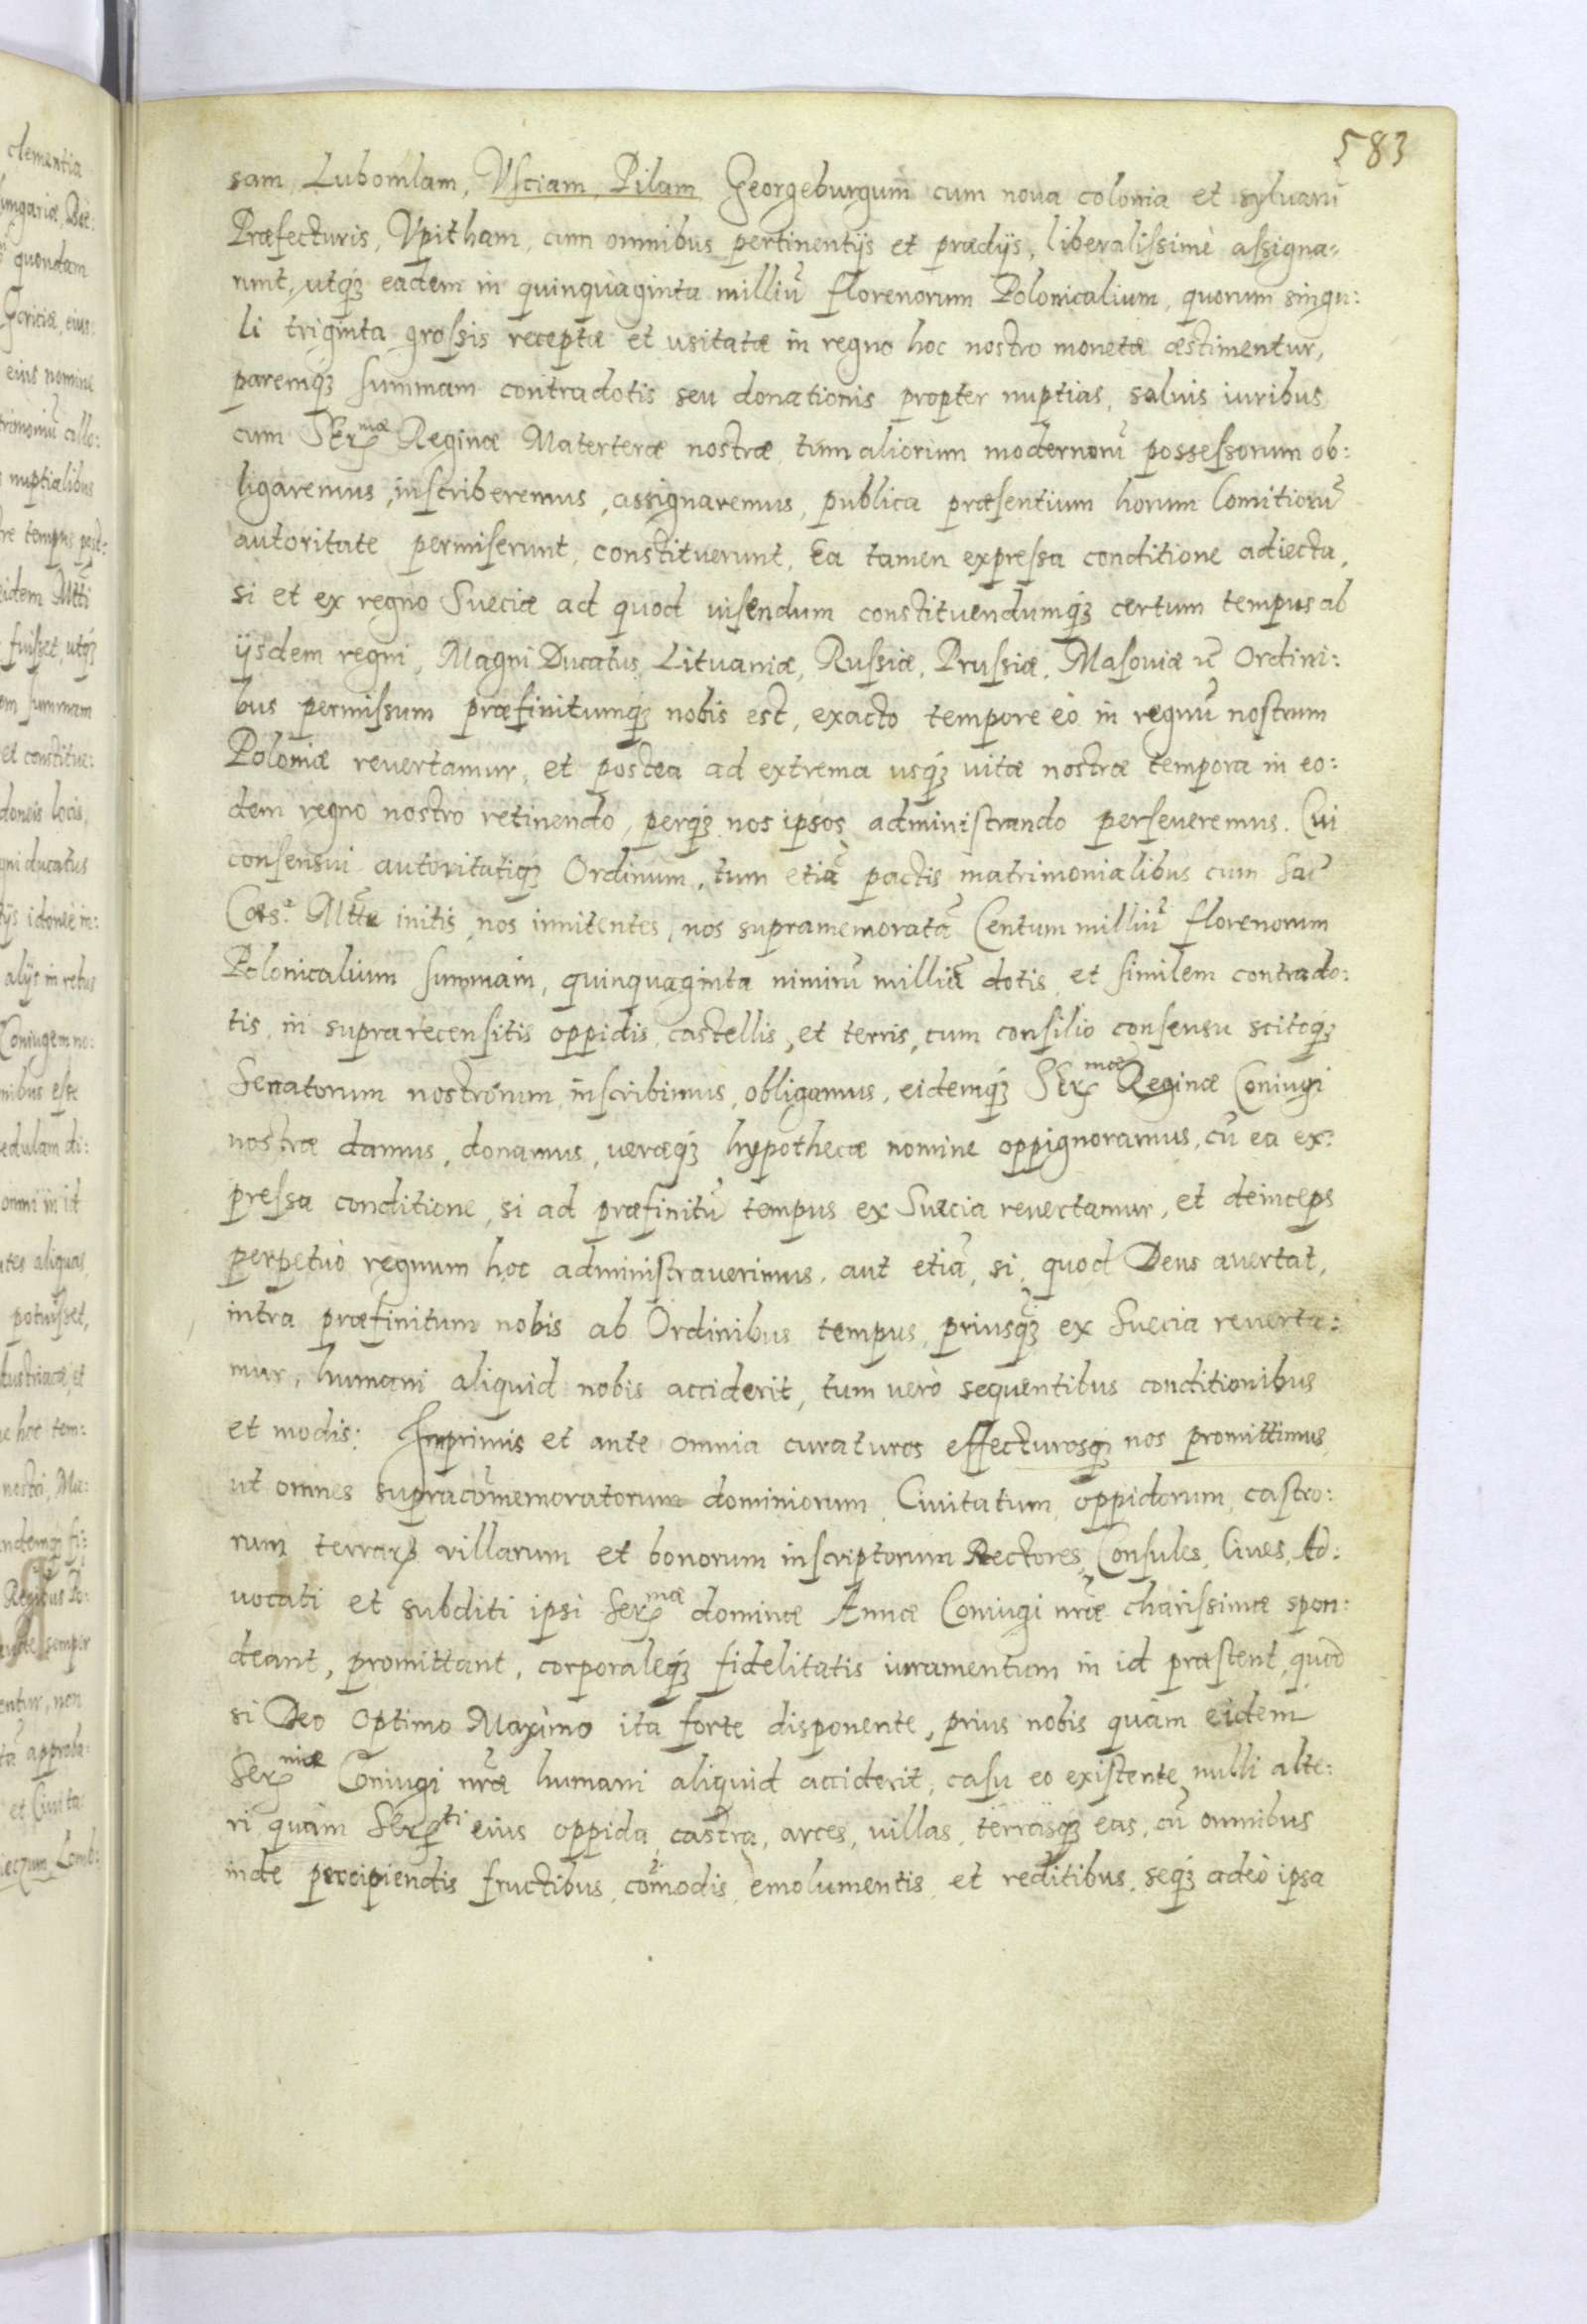 583
sam, Lubomlam, Vsciam, Pilam Georgeburgum cum noua colonia et syluarũ
Præfecturis, Vpitham, cum omnibus pertinentijs et prædijs, liberalissimè assigna=
runt, utq́ꝫ eadem in quinquaginta milliũ florenorum Polonicalium, quorum singu:
li triginta grossis receptæ et usitatæ in regno hoc nostro monetæ æstimentur,
paremq́ꝫ summam contradotis seu donationis propter nuptias, saluis iuribus
cum Serᵐᵃᵉ Reginæ Materteræ nostræ, tum aliorum modernorũ possessorum ob:
ligaremus, inscriberemus, assignaremus, publica præsentium horum Comitiorũ
autoritate permiserunt, constituerunt, Ea tamen expressa conditione adiecta,
si et ex regno Sueciæ ad quod uisendum constituendumq́ꝫ certum tempus ab
ijsdem regni, Magni Ducatus, Lituaniæ, Russiæ, Prussiæ, Masouiæ ꝛc̃ Ordini:
bus permissum præfinitumq́ꝫ nobis est, exacto tempore eò in regnũ nostrum
Poloniæ reuertamur, et postea ad extrema usq́ꝫ vitæ nostræ tempora in eo:
dem regno nostro retinendo, perq́ꝫ nos ipsos administrando perseueremus. Cui
consensui autoritatiq́ꝫ Ordinum, tum etiã pactis matrimonialibus cum Sac̃
Caes.ᵃ Mtte initis, nos innitentes, nos supramemoratã Centum milliũ florenorum
Polonicalium summam, quinquaginta nimirũ milliũ dotis, et similem contrado:
tis, in supra recensitis oppidis, castellis, et terris, cum consilio consensu scitoq́ꝫ
Senatorum nostrorum, inscribimus, obligamus, eidemq́ꝫ Serᵐᵃᵉ Reginæ Coniugi
nostræ damus, donamus, ueræq́ꝫ hypothecæ nomine oppignoramus, cũ ea ex:
pressa conditione, si ad præfinitũ tempus ex Suecia reuertamur, et deinceps
perpetuò regnum hoc administrauerimus, aut etiã, si, quod Deus auertat,
intra præfinitum nobis ab Ordinibus tempus, priusq̃ꝫ ex Suecia reuerta:
mur, humani aliquid nobis acciderit, tum verò sequentibus conditionibus
et modis: Inprimis et ante omnia curaturos effecturosq́ꝫ nos promittimus,
ut omnes supracõmemoratorum dominiorum, Ciuitatum, oppidorum, castro:
rum terrarꝝ villarum et bonorum inscriptorum Rectores, Consules, Ciues, Ad:
uocati et subditi ipsi Serᵐᵃᵉ dominæ Annæ Coniugi nr̃æ charissimæ spon:
deant, promittant, corporaleq́ꝫ fidelitatis iuramentum in id præstent, quod
si Deo Optimo Maximo ita forte disponente, prius nobis quàm eidem
Serᵐᵃᵉ Coniugi nr̃æ humani aliquid acciderit, casu eo existente, nulli alte:
ri quàm Serᵗⁱ eius oppida, castra, arces, villas, terrasq́ꝫ eas, cũ omnibus
inde percipiendis fructibus, cõmodis, emolumentis, et reditibus, seq́ꝫ adeò ipsa